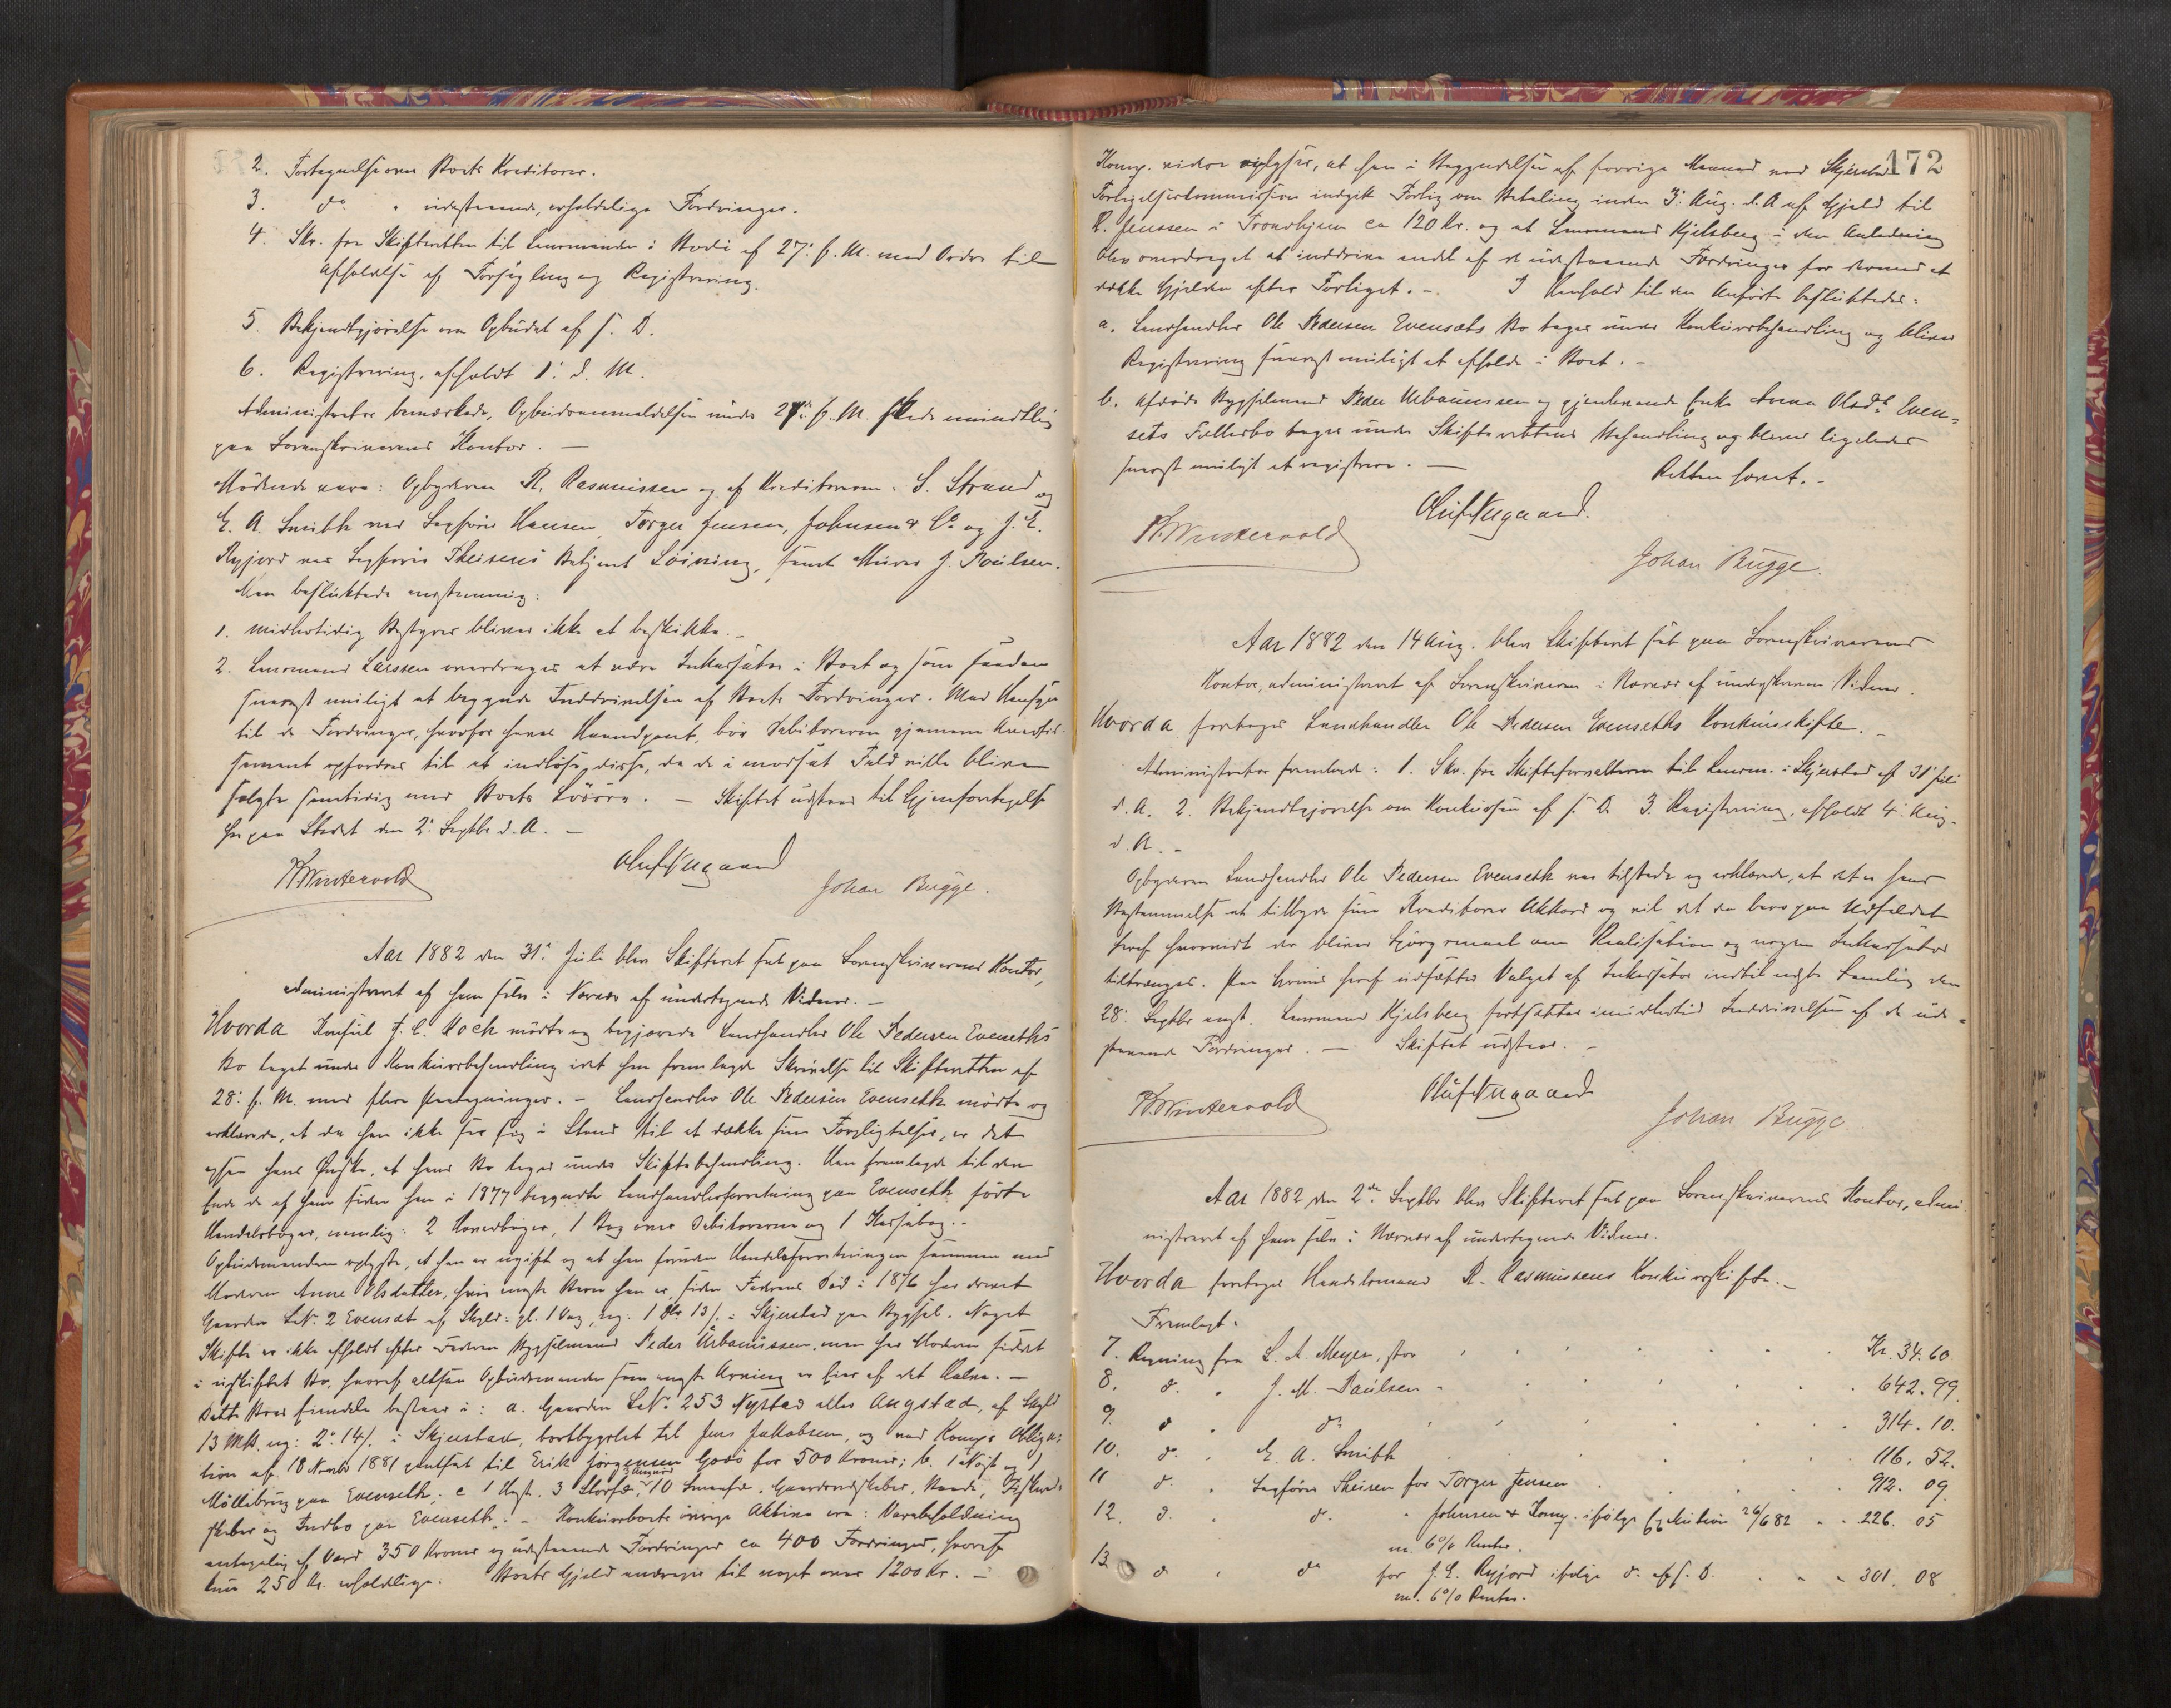 2. Fortegnelse over Boets Kreditorer.
3. do " udestaaende, erholdelige Fordringer.
4. Skr. fra Skifteretten til Lensmanden i Bodø af 27. f. M. med Ordre til
Afholdelse af Forsegling og Registrering.
5. Bekjendtgjørelse om Opbudet af s. D.
6. Registrering, afholdt 1. d. M.
Administrator bemærkede, Opbudsanmeldelsen under 27. f. M. skede mundtlig
paa Sorenskriverens Kontor. —
Mødende vare: Opbyderen R. Rasmussen og af Kreditorerne: S. Strand og
E. A. Smith ved Sagfører Hansen, Torger Jensen, Johnsen & Co og J. E.
Ryjord ved Sagfører Theisens Betjent Løining, samt Murer J. Poulsen.
Man besluttede enstemmig:
1. midlertidig Bestyrer bliver ikke at beskikke. -
2. Lensmand Larssen overdrages at være Inkassator i Boet og som saadan
snarest muligt at begynde Inddrivelsen af Boets Fordringer. Med Hensyn
til de Fordringer, hvorfor haves Haandpant, bør Debitorerne gjennem Avertis-
sement opfordres til at indløse disse, da de i modsat Fald ville blive
solgte samtidig med Boets Løsøre. — Skiftet udstaar til Gjenforetagelse
her paa Stedet den 2. Septbr d. A. -
Winterwold
Oluf Aagaard
Johan Bugge.
Aar 1882 den 31. Juli blev Skifteret sat paa Sorenskriverens Kontor,
administreret af ham selv i Nærvær af undertegnede Vidner. -
Hvorda Konsul J. C. Koch mødte og begjærede Landhandler Ole Pedersen Evenseths
Bo taget under Konkursbehandling idet han fremlagde Skrivelse til Skifteretten af
28. f. M. med flere Paategninger. - Landhandler Ole Pedersen Evenseth mødte og
erklærede, at da han ikke ser sig i Stand til at dække sine Forpligtelser, er det
ogsaa hans Ønske, at hans Bo tages under Skiftebehandling. Han fremlagde til den
Ende de af ham siden han i 1877 begyndte Landhandlerforretning paa Evenseth førte
Handelsbøger, nemlig: 2 Hovedbøger, 1 Bog over Debitorerne og 1 Kassabog. -
Opbudsmanden oplyste, at han er ugift og at han foruden Handelsforretningen sammen med
Moderen Anne Olsdatter, hvis eneste Barn han er, siden Faderens Død i 1876 har drevet
Gaarden LNr. 2 Evensæt af Skyld: gl. 1 Vog, ny: 1 Dlr 13 /. i Skjerstad paa Bygsel. Noget
Skifte er ikke afholdt efter Faderen Bygselmand Peder Urbanussen, men har Moderen siddet
i uskiftet Bo, hvoraf altsaa Opbudsmanden som eneste Arving er Eier af det Halve. -
Dette Boes Eiendele bestaar i: a. Gaarden LNr. 253 Nystad eller Augstad, af Skyld
13 Mk, ny: 2. 14 /. i Skjerstad, bortbygslet til Jens Jakobsen, og ved Komp's Obliga-
tion af 18 Novbr 1881 pantsat til Erik Jørgensen Godø for 500 Kroner; b. 1 Nøst og 1
Møllebrug paa Evenseth; c. 1 Hest, 3 Storfæ, 10 Smaafæ, Gaardsredskaber, Baade, Fiskered-
skaber og Indbo paa Evenseth. - Konkursboets øvrige Aktiva ere: Varebeholdning
antagelig af Værd 350 Kroner og udestaaende Fordringer ca 400 Fordringer, hvoraf
kun 250 Kr. erholdelige. Boets Gjæld andrager til noget over 1200 Kr. -
172
Komp. videre oplyser, at han i Begyndelsen af forrige Maaned ved Skjerstad
Forligelseskommission indgik Forlig om Betaling inden 3. Aug. d. A. af Gjæld til
R. Jenssen i Trondhjem ca 120 Kr. og at Lensmand Kjelsberg i den Anledning
blev overdraget at inddrive endel af de udestaaende Fordringer for dermed at
dække Gjælden efter Forliget. - I Henhold til det Anførte besluttedes:
a. Landhandler Ole Pedersen Evensæts Bo tages under Konkursbehandling og bliver
Registrering snarest muligt at afholde i Boet. -
b. Afdøde Bygselmand Peder Urbanussen og gjenlevende Enke Anna Olsdt Even-
sets Fællesbo tages under Skifterettens Behandling og bliver ligeledes
snarest muligt at registrere. — Retten hævet. -
Winterwold
Oluf Aagaard.
Johan Bugge.
Aar 1882 den 14 Aug. blev Skifteret sat paa Sorenskriverens
Kontor, administreret af Sorenskriveren i Nærvær af underskrevne Vidner.
Hvorda foretoges Landhandler Ole Pedersen Evenseths Konkursskifte. -
Administrator fremlagde: 1. Skr. fra Skifteforvalteren til Lensm. i Skjerstad af 31 Juli
d. A. 2. Bekjendtgjørelse om Konkursen af s. D. 3. Registrering, afholdt 4. Aug.
d. A. -
Opbyderen Landhandler Ole Pedersen Evenseth var tilstede og erklærede, at det er hans
Bestemmelse at tilbyde sine Kreditorer Akkord og vil det da bero paa Udfaldet
heraf hvorvidt der bliver Spørgsmaal om Realisation og nogen Inkassator
tiltrænges. Paa Grund heraf udsættes Valget af Inkassator indtil næste Samling den
28. Septbr næst. Lensmand Kjelsberg fortsætter imidlertid Inddrivelsen af de ude-
staaende Fordringer. — Skiftet udstaar. -
Winterwold
Oluf Aagaard
Johan Bugge
Aar 1882 den 2den Septbr blev Skifteret sat paa Sorenskriverens Kontor, admi
nistreret af ham selv i Nærvær af undertegnede Vidner.
Hvorda foretoges Handelsmand R. Rasmussens Konkursskifte. -
Fremlagt:
7. Regning fra L. A. Meyer, stor Kr. 34. 60
8. do. " J. M. Paulsen - 642. 99
9. do " do 314. 10.
10. do. " E. A. Smith 116. 52.
11 do. " Sagfører Theisen for Torger Jensen 912. 09
12. do. " do. " Johnsen & Komp. ifølge Exekution 26/6 82 226. 05
m. 6% Renter.
13. do " do for J. E. Ryjord ifølge do. af s. D. 301. 08
m. 6% Renter.